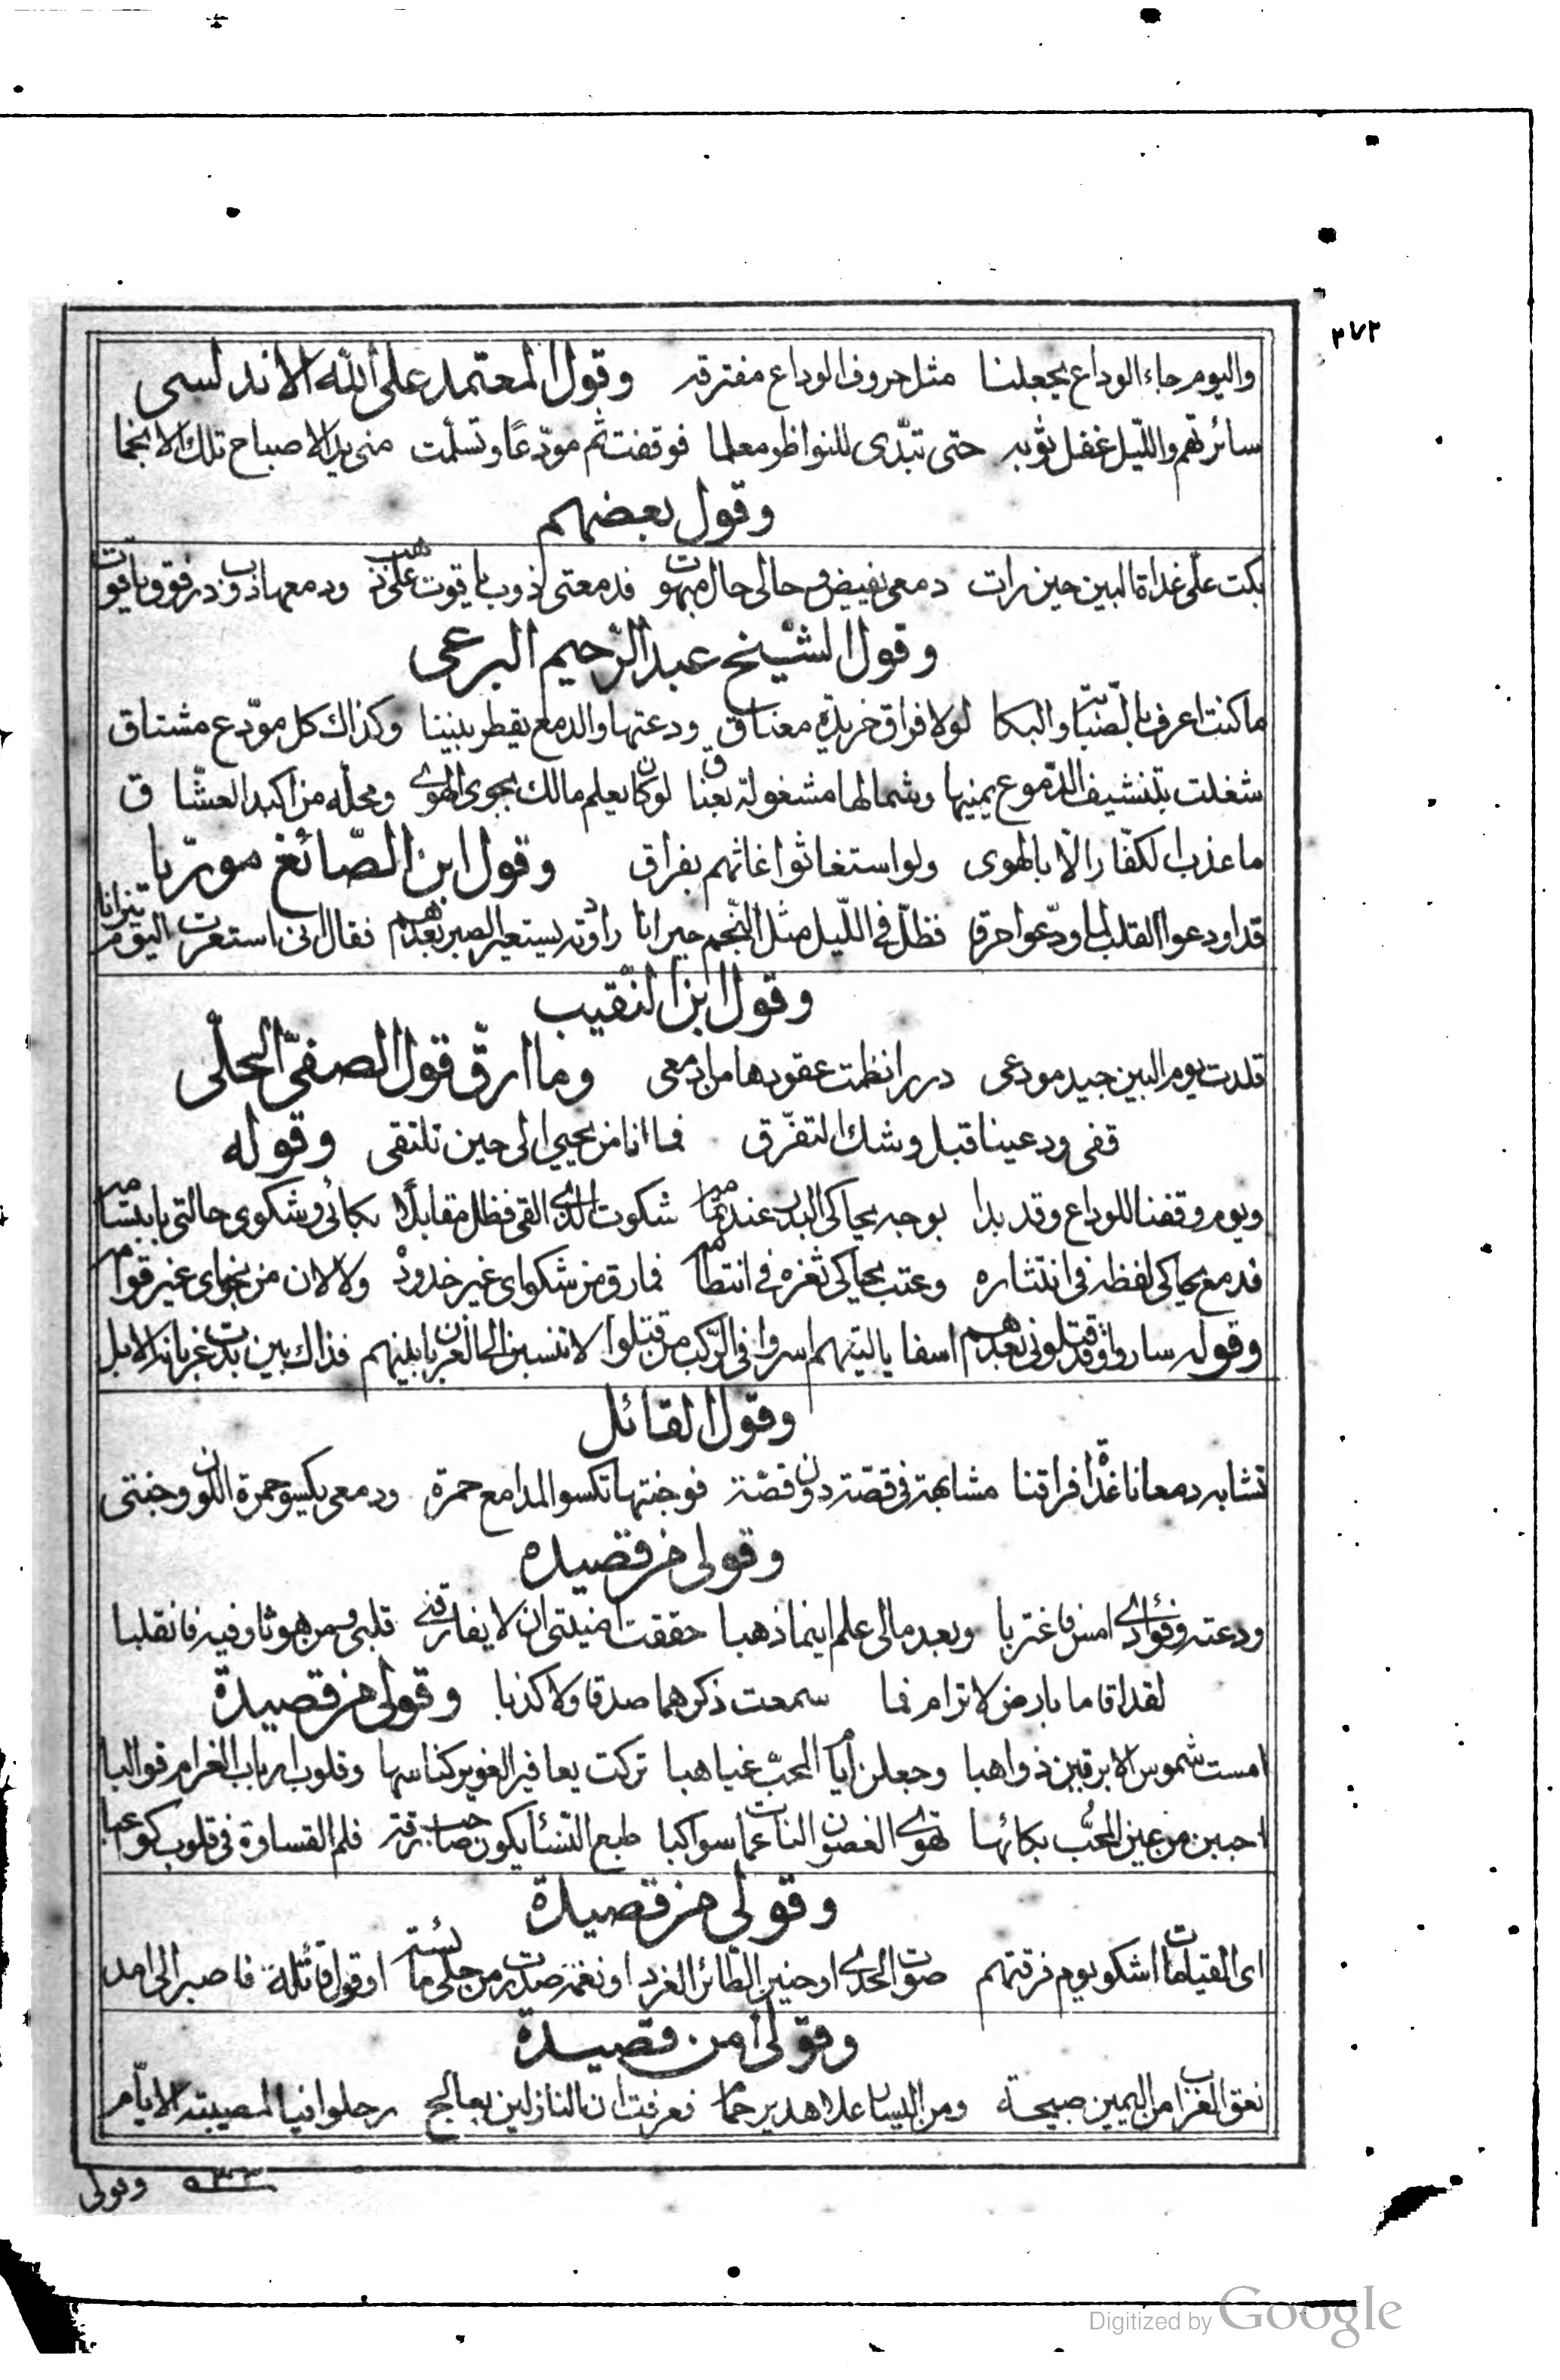 ٢٧٢
واليوم جاء الوداع يجعلنا مثل حروف الوداع مفترقه وقول المعتمد على الله الاندلسى
سائرتهم والليل غفل ثوبه حتى تبدّى للنواظر معلما فوقفت ثم مودّعًا وتسلّمت منى يد الاصباح تلك الانجما
وقول بعضهم
بكت علىّ غداة البين حين رات دمعى يفيض وحالى حال مبهوت فدمعتى ذوب ياقوت على ذهب ودمعها ذوب در فوق ياقوت
وقول الشيخ عبد الرّحيم البرعى
ما كنت اعرف بالصّبا والبكا لولا فراق خريدة معناق ودعتها والدمع يقطر بيننا وكذاك كل مودّع مشتاق
شغلت بتنشيف الدّموع يمينها وشمالها مشغولة بعناق لو كان يعلم مالك بجوى الهوى ومحلّه من اكبد العشّاق
ما عذب الكفّار الّا بالهوى ولو استغاثوا غاثهم بفراق وقول ابن الصّائغ مورّيا
قد اودعوا القلب لما ودّعوا حرقا فظلّ فى اللّيل مثل النّجم حيرانا راودته يستعير الصبر بعدهم فقال انى استعرت اليوم نيرانا
وقول ابن النّقيب
قلدت يوم البين جيد مودعى دررا نظمت عقودها من ادمعى وما ارقّ قول الصفىّ الحلّى
قفى ودعينا قبل وشك التفرّق فما انا من يحيي الى حين نلتقى وقوله
ويوم وقفنا للوداع وقد بدا بوجه يحاكى البدر عند تمامه شكوت الذى القى فظل مقابلًا بكائى وشكوى حالتى بابتسامه
فدمع يحاكى لفظه فى انتثاره وعتب يحاكى ثغره فى انتظامه فما رق من شكواى غير خدوده ولا لان من نجواى غير قوامه
وقوله ساروا وقد قتلونى بعدهم اسفا ياليتهم اسروا فى الرّكب من قتلوا لا تنسبن الى الغربان بينهم فذاك بين بدت غربانه الابل
وقول القائل
تشابه دمعانا غداة فراقنا مشابهة فى قصّة دون قصّة فوجنتها تكسو المدامع حمرة ودمعى يكسو حمرة اللون وجنتى
وقولى من قصيده
ودعته وفؤادى امس فاغتربا وبعد مالى علم اينما ذهبا حققت امنيتى ان لا يفارقنى قلبى ومن هو ثاو فيه فانقلبا
لقد اقاما بارض لا ترام فما سمعت ذكرهما صدقا ولا كذبا وقولى من قصيدة
امست شموس الابرقين ذواهبا وجعلن ايام المحبّ غياهبا تركت يعافير الغوير كناسها وقلوب ارباب الغرام قوالبا
احببن من عين المحُب بكائها تهوى الغصون الناعمات سواكبا طبع النسا يكون صاحب رقة فلم القساوة فى قلوب كواعبا
وقولى من قصيدة
اى القيامات اشكو يوم فرقتهم صوت الحدى او حنين الطّائر الغرد او نغمة صدرت من حلى مائسة او قول قائلة فاصبر الى امد
وقولى من قصيدة
نعق الغراب من اليمين صبيحة ومن اليسار علا هدير حمام فعرفت ان النازلين بعالج رحلوا فيا لمصيبة الايّام
وقولى